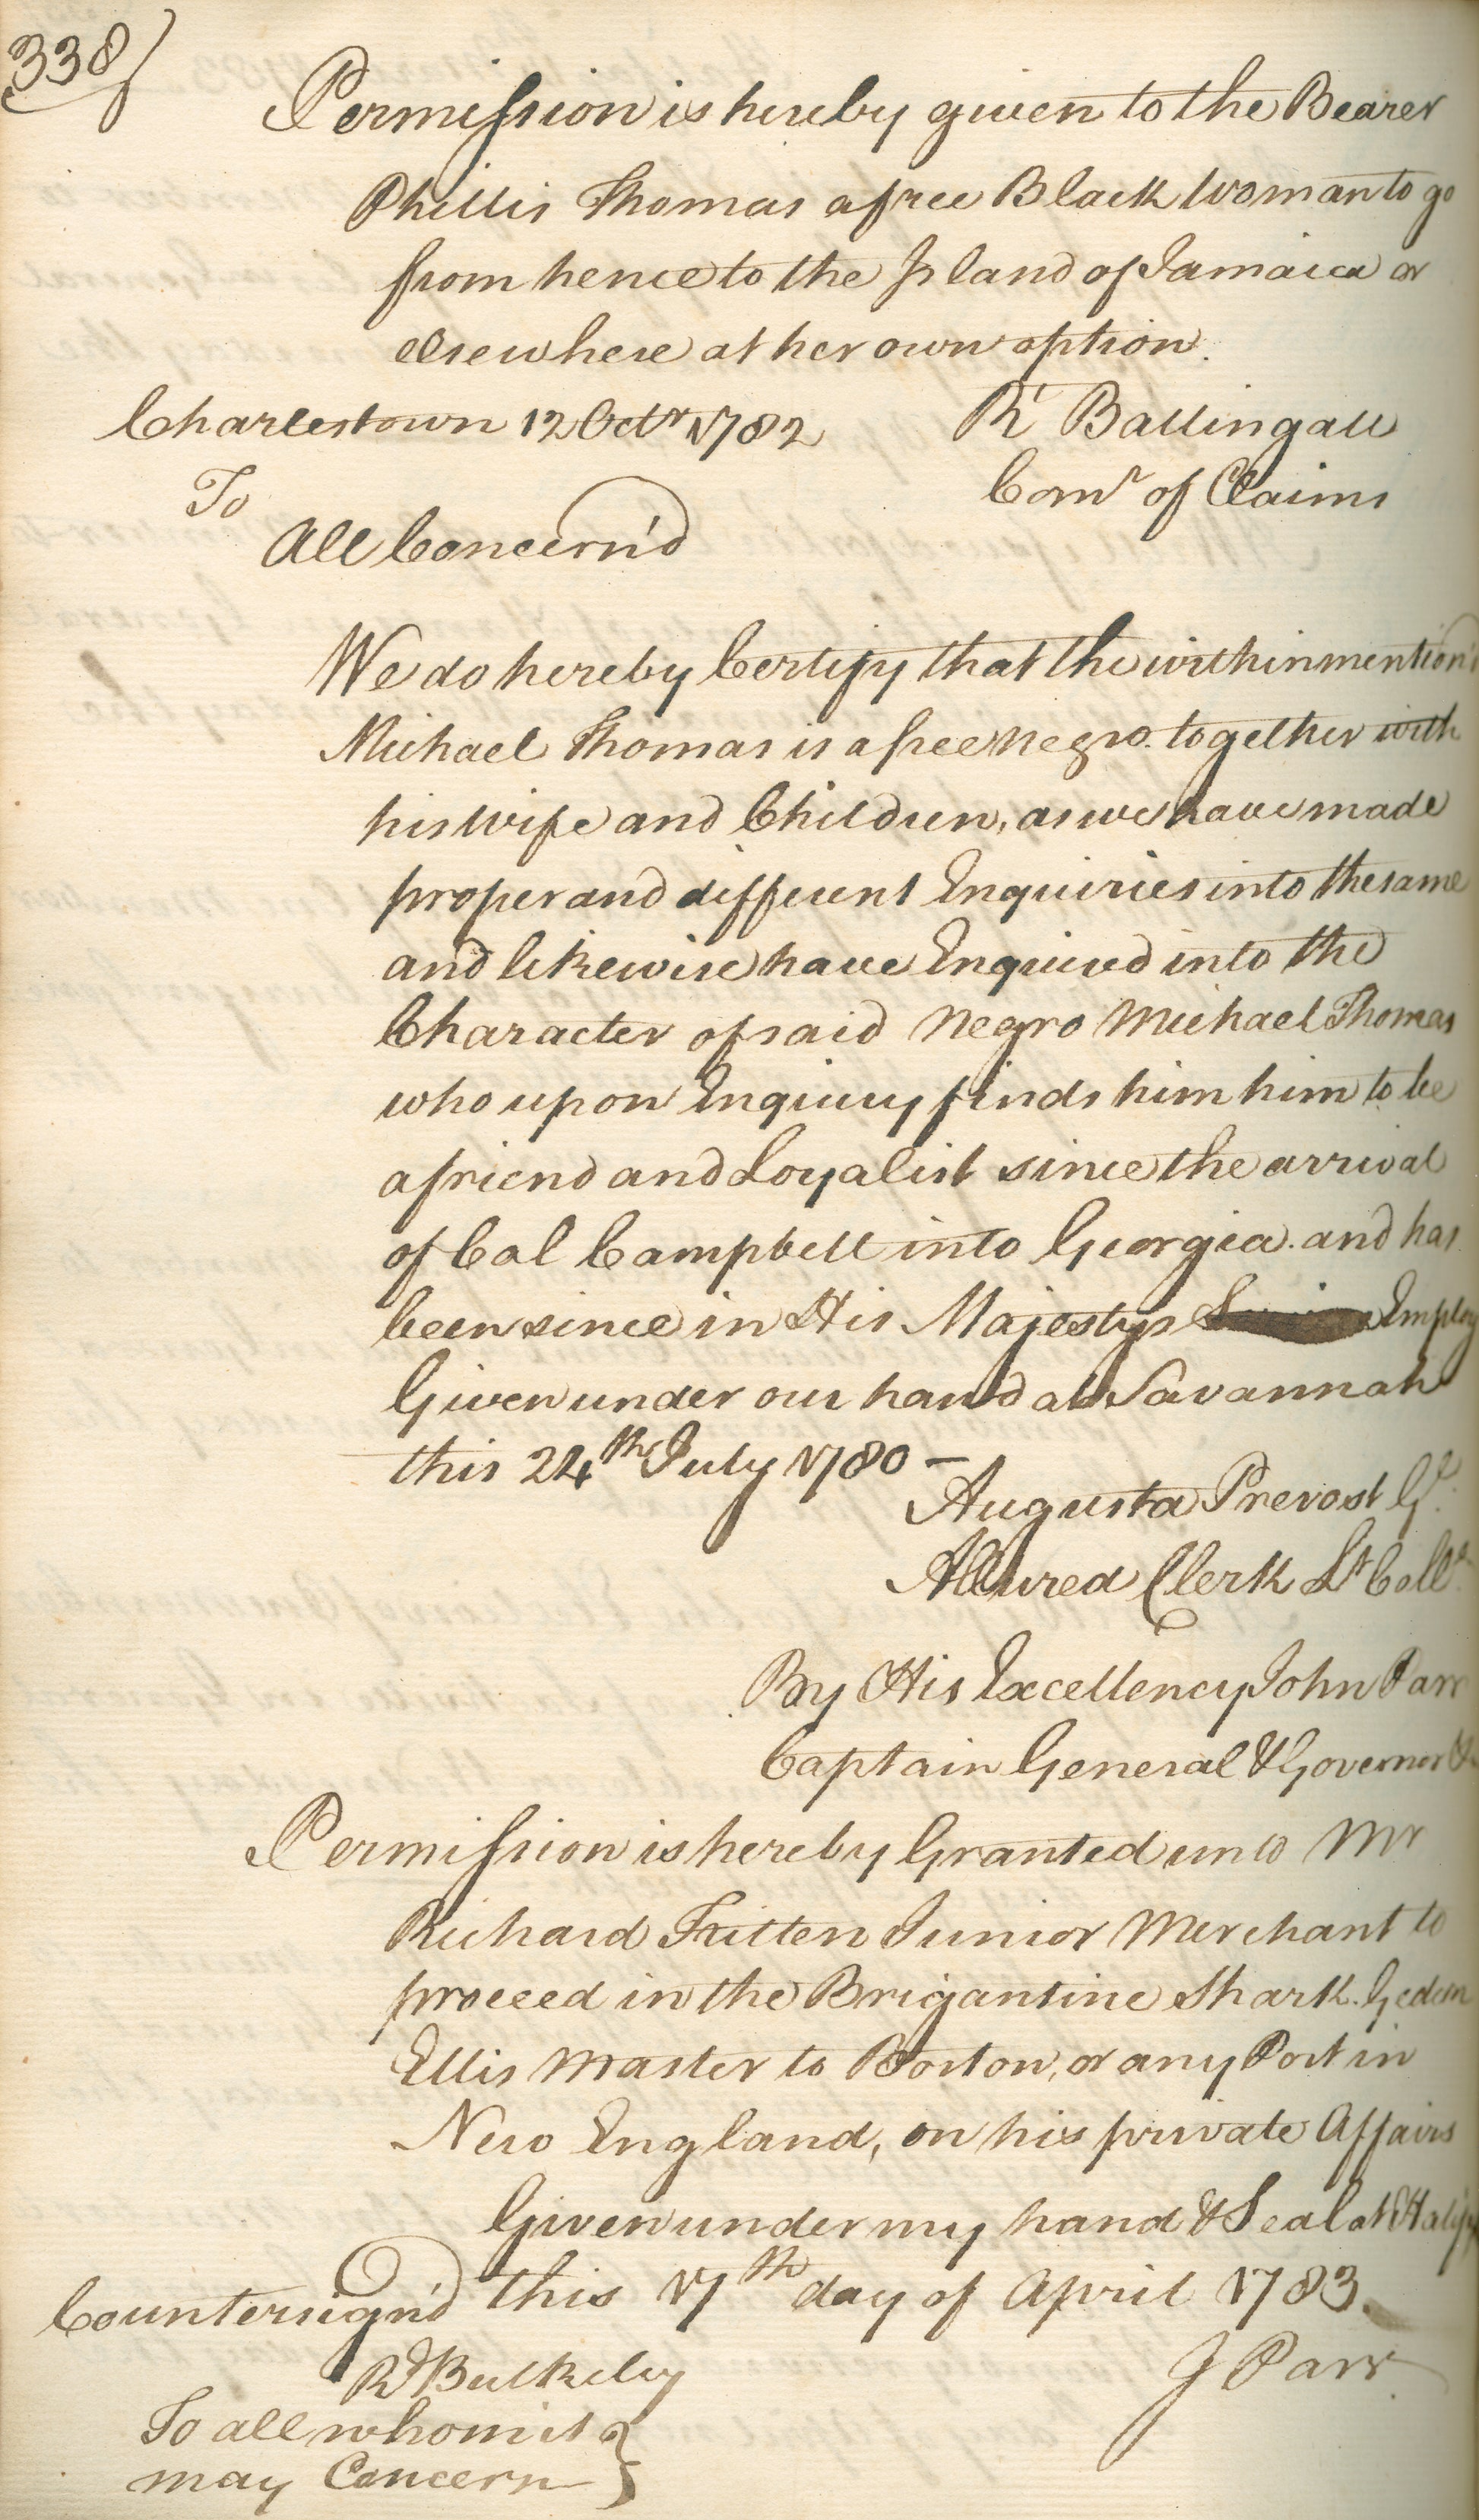 338
Permission is hereby given to the Bearer
Phillis Thomas a free Black Woman to go
from hence to the Island of Jamaica or
elsewhere at her own option.
Charlestown 12 Octr 1782
Rt Ballingall
Comr of Claims
To
All Concern'd
We do hereby Certify that the within mention'd
Michael Thomas is a free Negro together with
his wife and Children, as we have made
proper and different Enquiries into the same
and likewise have Enquired into the
Character of said Negro Michael Thomas
who upon Enquiry finds him him to be
a friend and Loyalist since the arrival
of Col Campbell into Georgia and has
been since in His Majestys Employ
Given under our hand at Savannah
this 24th July 1780 -
Augusta Prevost Gl.
Allured Clerk Lt Coll.
By His Excellency John Parr
Captain General & Governor &
Permission is hereby Granted unto Mr
Richard Tritten Junior Merchant to
proceed in the Brigantine Shark
Ellis Master to Boston, or any Port in
New England, on his private Affairs
Given under my hand & Seal at Halifx
this 17th day of April 1783.
Countersign'd
Rd Bulkeley
J Parr
To all whom it
may Concern